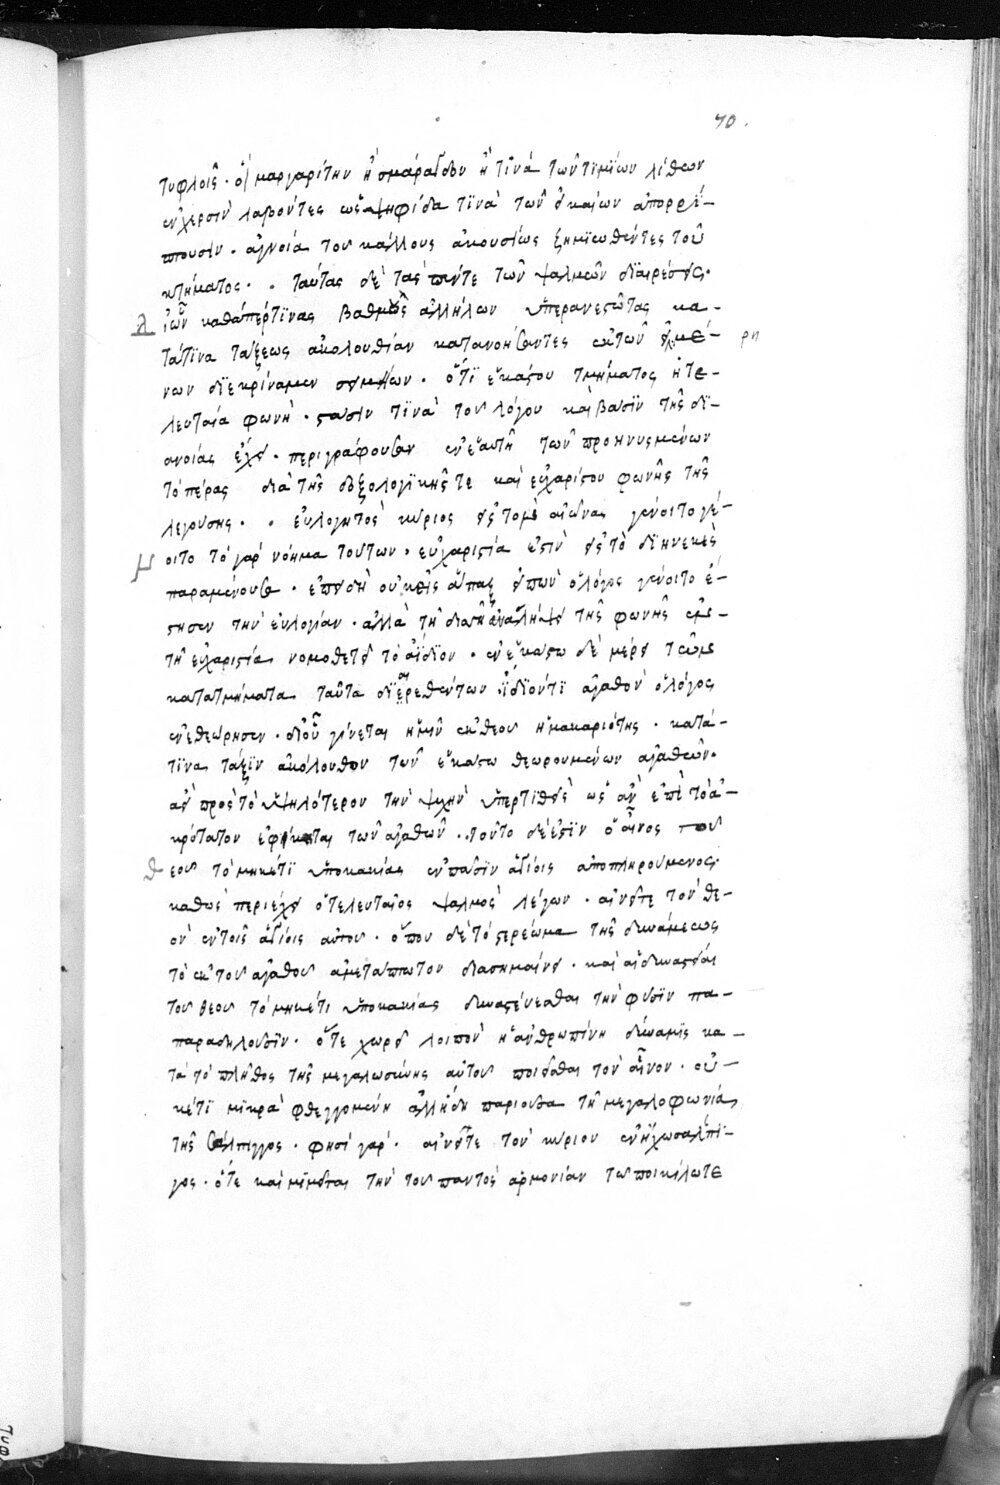 70.
τυφλοῖς. οἱ μαργαρίτην ἢ σμάραγδον ἢ τινὰ τῶν τιμίων λίθων
ἐν χερσὶν λαβόντες ὡς ψηφίδα τινὰ τῶν εἰκαίων ἀπορρί-
πτουσιν. ἀγνοία του κάλλους ἀκουσίως ζημιωθέντες τοῦ
κτήματος. ταύτας δὲ τὰς πέντε τῶν ψαλμῶν διαιρέσεις.
λ ἰῶν καθάπερ τινας βαθμοὺς ἀλλήλων ὑπερανεστῶτας κα-
τά τινα τάξεως ἀκολουθίαν κατανοήσαντες ἐκ τῶν εἰρημέ- ρη
νων διεκρίναμεν σημείων. ὅτι ἑκάστου τμήματος ἡ τε-
λευταία φωνὴ. στάσιν τινὰ του λόγου καὶ βάσιν τῆς δι-
ανοίας ἔχει. περιγράφουσαν ἐν ἑαυτῇ τῶν προηνυσμένων
τὸ πέρας διὰ τῆς δοξολογικῆς τε καὶ εὐχαρίστου φωνῆς τῆς
λεγούσης. εὐλογητὸς κύριος εἰς τοὺς αἰῶνας γένοιτο γέ-
μ οιτο τὸ γὰρ νόημα τούτων. εὐχαριστία ἐστὶν εἰς τὸ διηνεκὲς
παραμένουσα. ἐπειδὴ οὐκ εἰς ἅπαξ εἰπὼν ὁ λόγος γένοιτο ἔ-
στησεν τὴν εὐλογίαν. ἀλλὰ τῇ διπλῇ ἀναλήψει τῆς φωνῆς
τῇ εὐχαριστία νομοθετεῖ τὸ ἀΐδιον. ἐν ἑκάστω δὲ μέρει
κατατμήματα ταῦτα διαιρεθέντων ἰδιόν τι ἀγαθὸν ὁ λόγος
ἐνεθεώρησεν. διοῦ γίνεται ἡμῖν ἐκ θεου ἡ μακαριότης. κατά-
τινα τάξιν ἀκόλουθον τῶν ἑκάστω θεωρουμένων ἀγαθῶν.
ἀεὶ πρὸς τὸ ὑψηλότερον τὴν ψυχὴν ὑπερτιθεὶς ὡς ἂν ἐπὶ τὸ ἀ-
κρότατον ἐφίκηται τῶν ἀγαθῶν. τοῦτο δέ ἐστιν ὁ αἶνος του
θ εου τὸ μηκέτι ὑπο κακίας ἐν πᾶσιν ἁγίοις ἀποπληρούμενος.
καθὼς περιέχει ὁ τελευταῖος ψαλμὸς λέγων. αἰνεῖτε τὸν θε-
ὸν ἐν τοῖς ἁγίοις αὐτου. ὅπου δὲ τὸ στερέωμα τῆς δυνάμεως
τὸ ἐκ του ἀγαθου ἀμετάπτωτον διασημαίνει. καὶ αἱ δυναστεῖαι
του θεου τὸ μηκέτι ὑπο κακίας δυναστεύεσθαι τὴν φύσιν πα-
παραδηλοῦσιν. ὅτε χωρεῖ λοιπὸν ἡ ἀνθρωπίνη δύναμις κα-
τὰ τὸ πλῆθος τῆς μεγαλωσύνης αὐτου ποιεῖσθαι τὸν αἶνον. οὐ-
κέτι μικρὰ φθεγγομένη ἀλλήδη παριοῦσα τῇ μεγαλοφωνία
τῆς σάλπιγγος. φησὶ γάρ. αἰνεῖτε τὸν κύριον ἐν ἤχω σάλπιγ-
γος. ὅτε καὶ μιμεῖται τὴν του παντὸς ἁρμονίαν τω ποικίλω τε